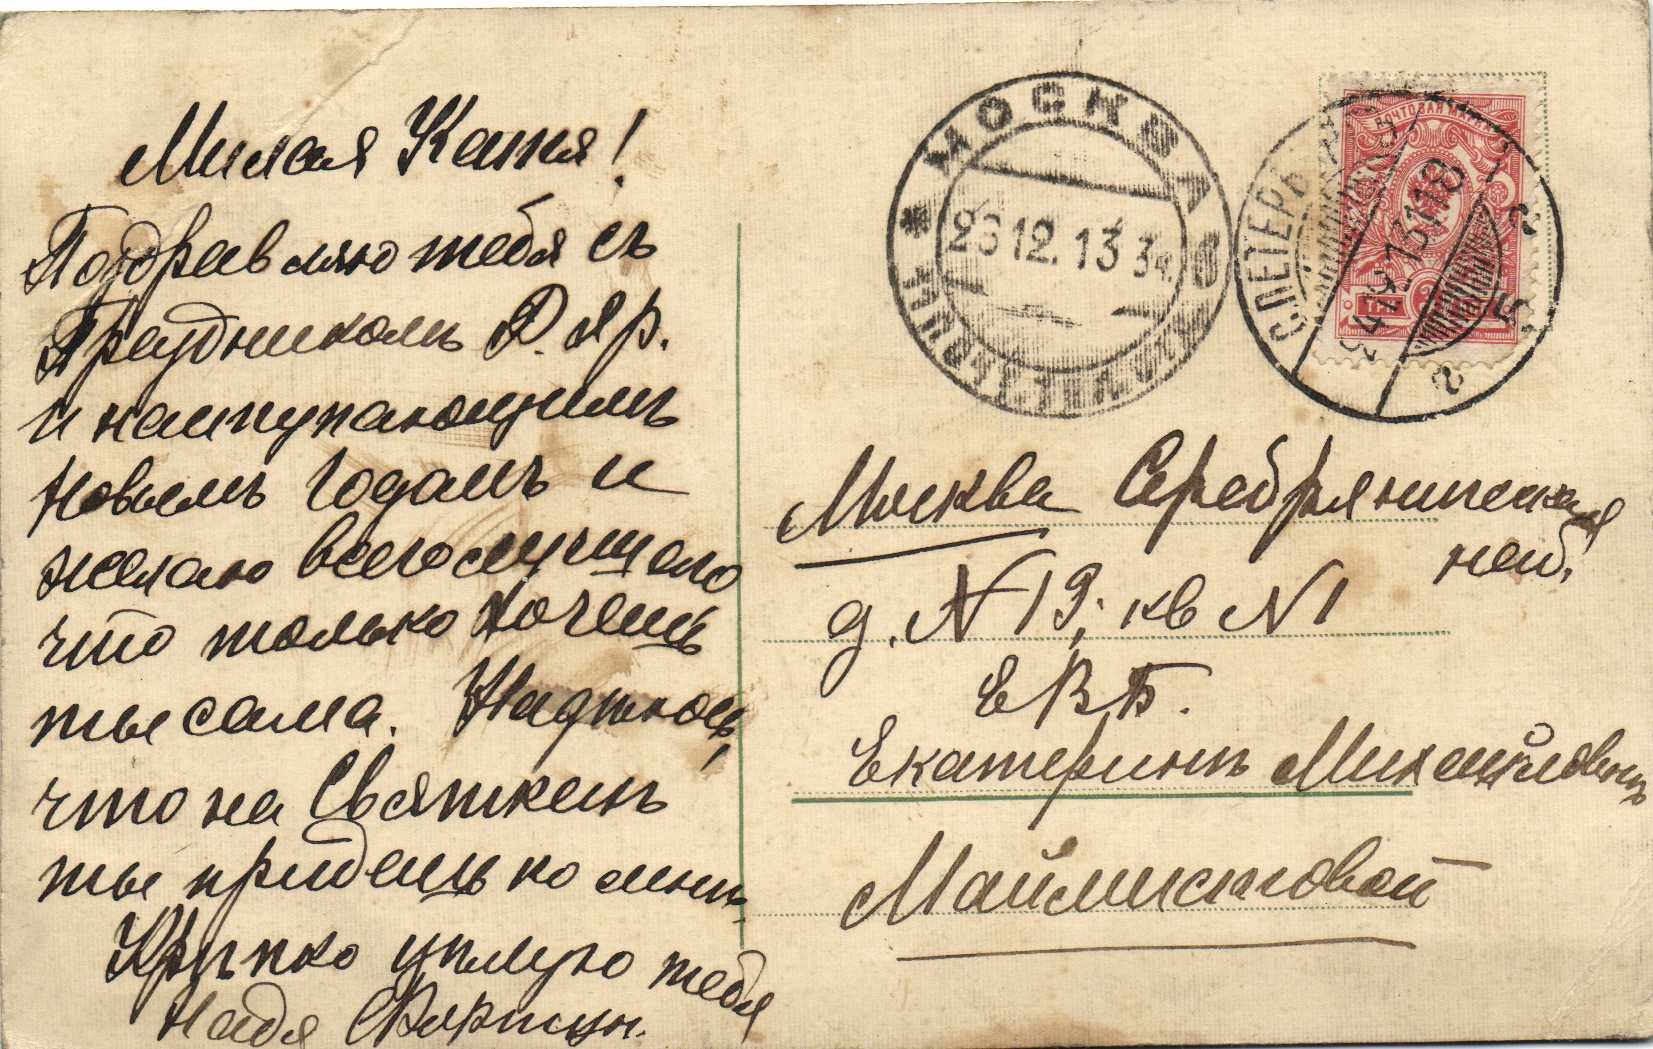 Милая Катя!
Поздравляю тебя съ
Праздникомъ Р. Хр.
и наступающимъ
Новымъ Годомъ и
желаю всего лучшего
что только хочешь
ты сама. Надѣюсь,
что на Святкахъ
ты придешь ко мнѣ.
Крѣпко цѣлую тебя
Надя
МОСКВА
26 12. 13
С.ПЕТЕРБ
ПОЧТОВАЯ МАРКА
Москва Серебряническая
наб.
д. № 19, кв № 1
ЕВБ.
Екатеринѣ Михайловнѣ
Маймистовой